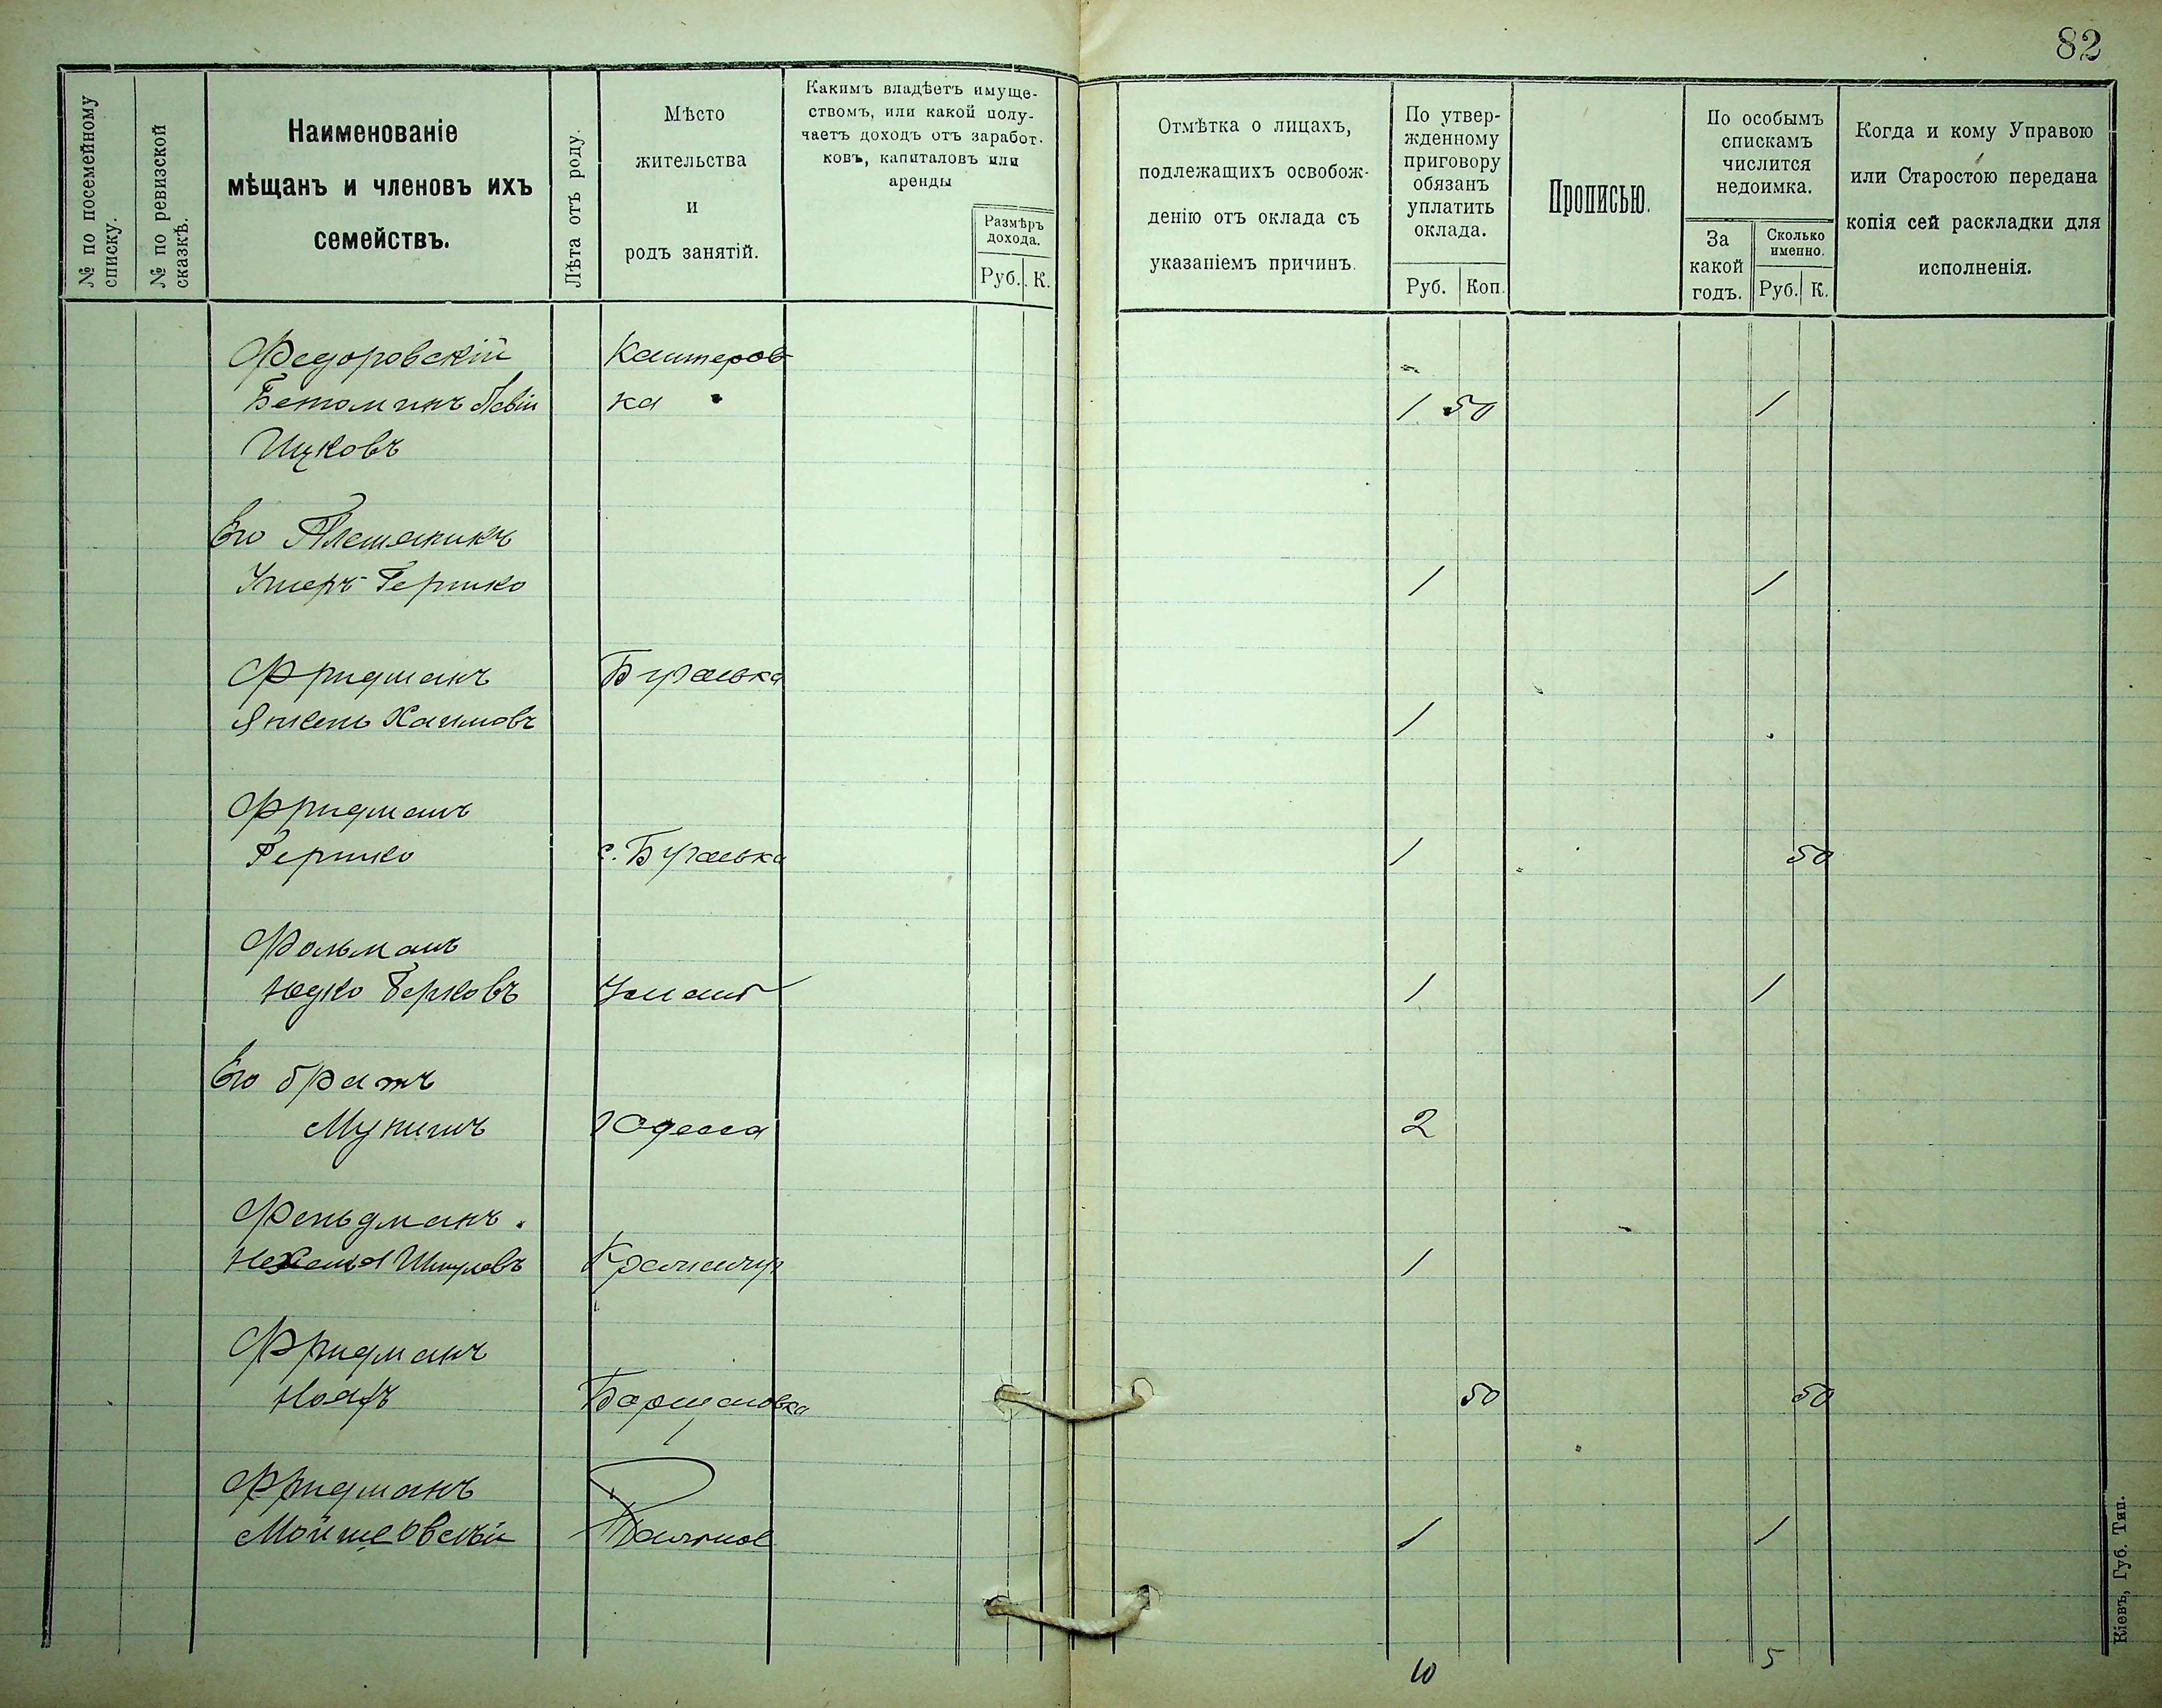 82
№ по посемейному списку.
№ по ревизской сказкѣ.
Наименованіе
мѣщанъ и членовъ ихъ
семействъ.
Лѣта отъ роду.
Мѣсто
жительства
и
родъ занятій.
Какимъ владѣетъ имуще-
ствомъ, или какой полу-
чаетъ доходъ отъ заработ-
ковъ, капиталовъ или
аренды
Размѣръ
дохода.
Руб. К.
Отмѣтка о лицахъ,
подлежащихъ освобож-
денію отъ оклада съ
указаніемъ причинъ.
По утвер-
жденному
приговору
обязанъ
уплатить
оклада.
Руб. Коп.
Прописью.
По особымъ
спискамъ
числится
недоимка.
За
какой
годъ.
Сколько
именно.
Руб. К.
Когда и кому Управою
или Старостою передана
копія сей раскладки для
исполненія.
Федоровскій Кантеров-
ка 1 50 1
Ицковъ
Его Племяникъ
Гершко 1 1
Фридманъ Бугаевка
Янкель Хаимовъ 1
Фридманъ
Гершко с. Бугаевка 1 50
Фольманъ
Юдко Берковъ Умань 1 1
Его братъ
Мунишъ г Одесса 2
Фельдманъ.
Нехемья Шмулевъ Кременчуг 1
Фридманъ
Борщановка 50 50
Фридманъ
Мойше Овсѣй Тальное 1 1
10 5
Кіевъ, Губ. Тип.